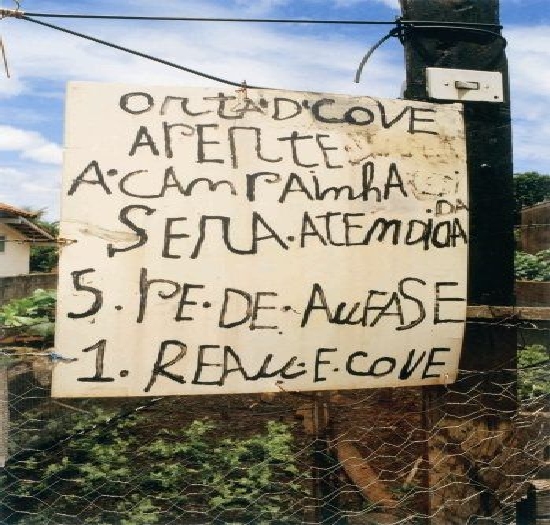 ORTA·D'COVE
APERTE
A·CAMPAINHA
SERA·ATEMDIDA
5·PE·DE·AUFASE
1·REAU·E·COVE